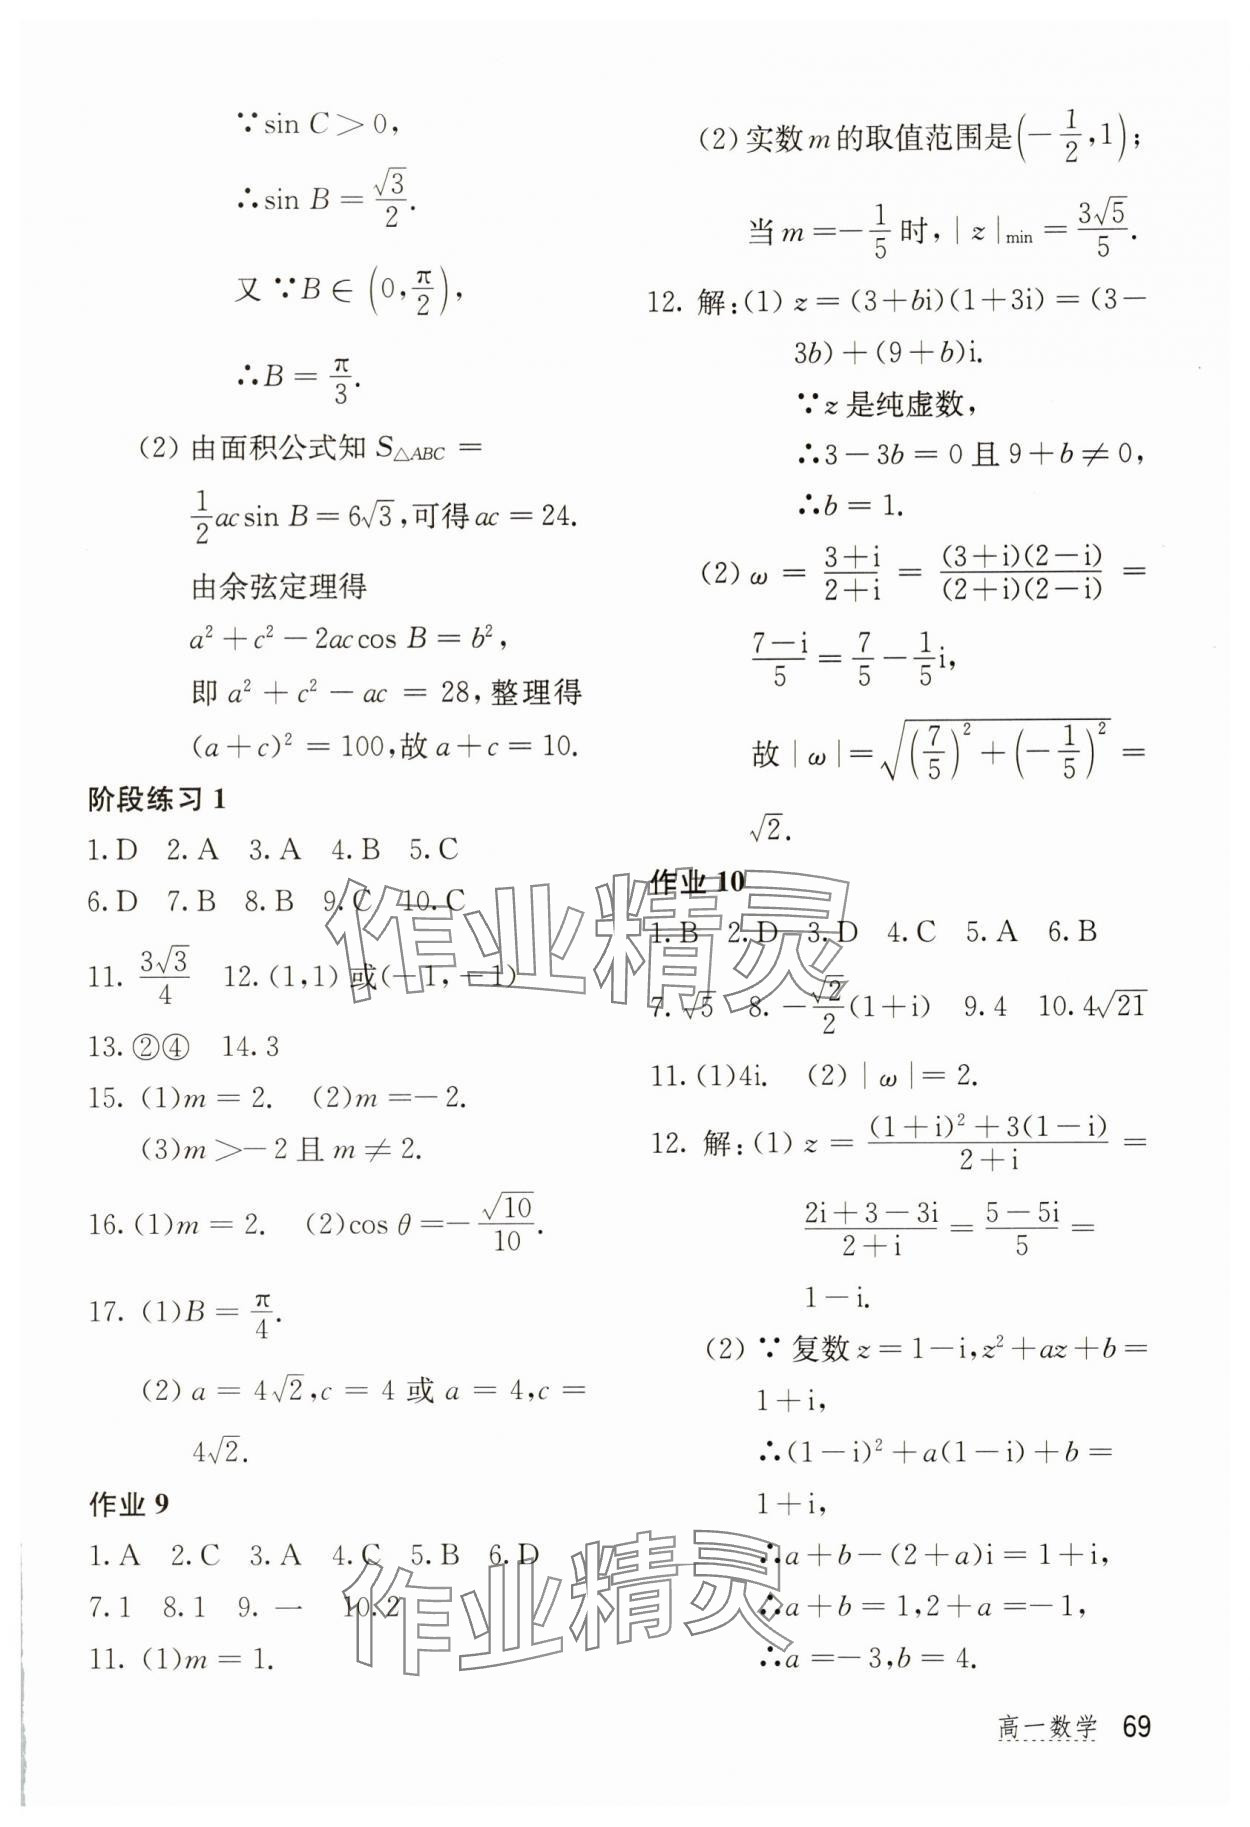 ∵sin C＞0,
∴sin B=√3/2.
又∵B∈(0,π/2),
∴B=π/3.
(2) 由面积公式知 S△ABC =
1/2 acsin B=6√3,可得ac=24.
由余弦定理得
a²+c²-2accos B=b²,
即a²+c²-ac=28,整理得
(a+c)²=100,故a+c=10.
阶段练习1
1.D 2.A 3.A 4.B 5.C
6.D 7.B 8.B 9.C 10.C
11. 3√3/4 12.(1,1)或(-1,-1)
13.②④ 14.3
15. (1)m=2. (2)m=-2.
(3)m>-2且m≠2.
16.(1)m=2. (2)cos θ=-√10/10.
17. (1)B=π/4.
(2)a=4√2,c=4或a=4,c=
4√2.
作业9
1.A 2.C 3.A 4.C 5.B 6.D
7.1 8.1 9.一 10.2
11. (1)m=1.
(2)实数m的取值范围是(-1/2,1);
当m=-1/5时,|z|min=3√5/5.
12. 解:(1) z=(3+bi)(1+3i)=(3-
3b)+(9+b)i.
∵z是纯虚数,
∴3-3b=0且9+b≠0,
∴b=1.
(2) ω=(3+i)/(2+i)=(3+i)(2-i)/(2+i)(2-i)=
(7-i)/5=7/5-1/5i,
故|ω|=√((7/5)²+(-1/5)²)=
√2.
作业10
1.B 2.D 3.D 4.C 5.A 6.B
7.√5 8.-√2/2(1+i) 9.4 10.4√21
11.(1)4i. (2)|ω|=2.
12. 解:(1) z=((1+i)²+3(1-i))/(2+i)=
(2i+3-3i)/(2+i)=(5-5i)/5=
1-i.
(2)∵复数z=1-i,z²+az+b=
1+i,
∴(1-i)²+a(1-i)+b=
1+i,
∴a+b-(2+a)i=1+i,
∴a+b=1,2+a=-1,
∴a=-3,b=4.
高一数学 69
作业精灵
作业精灵